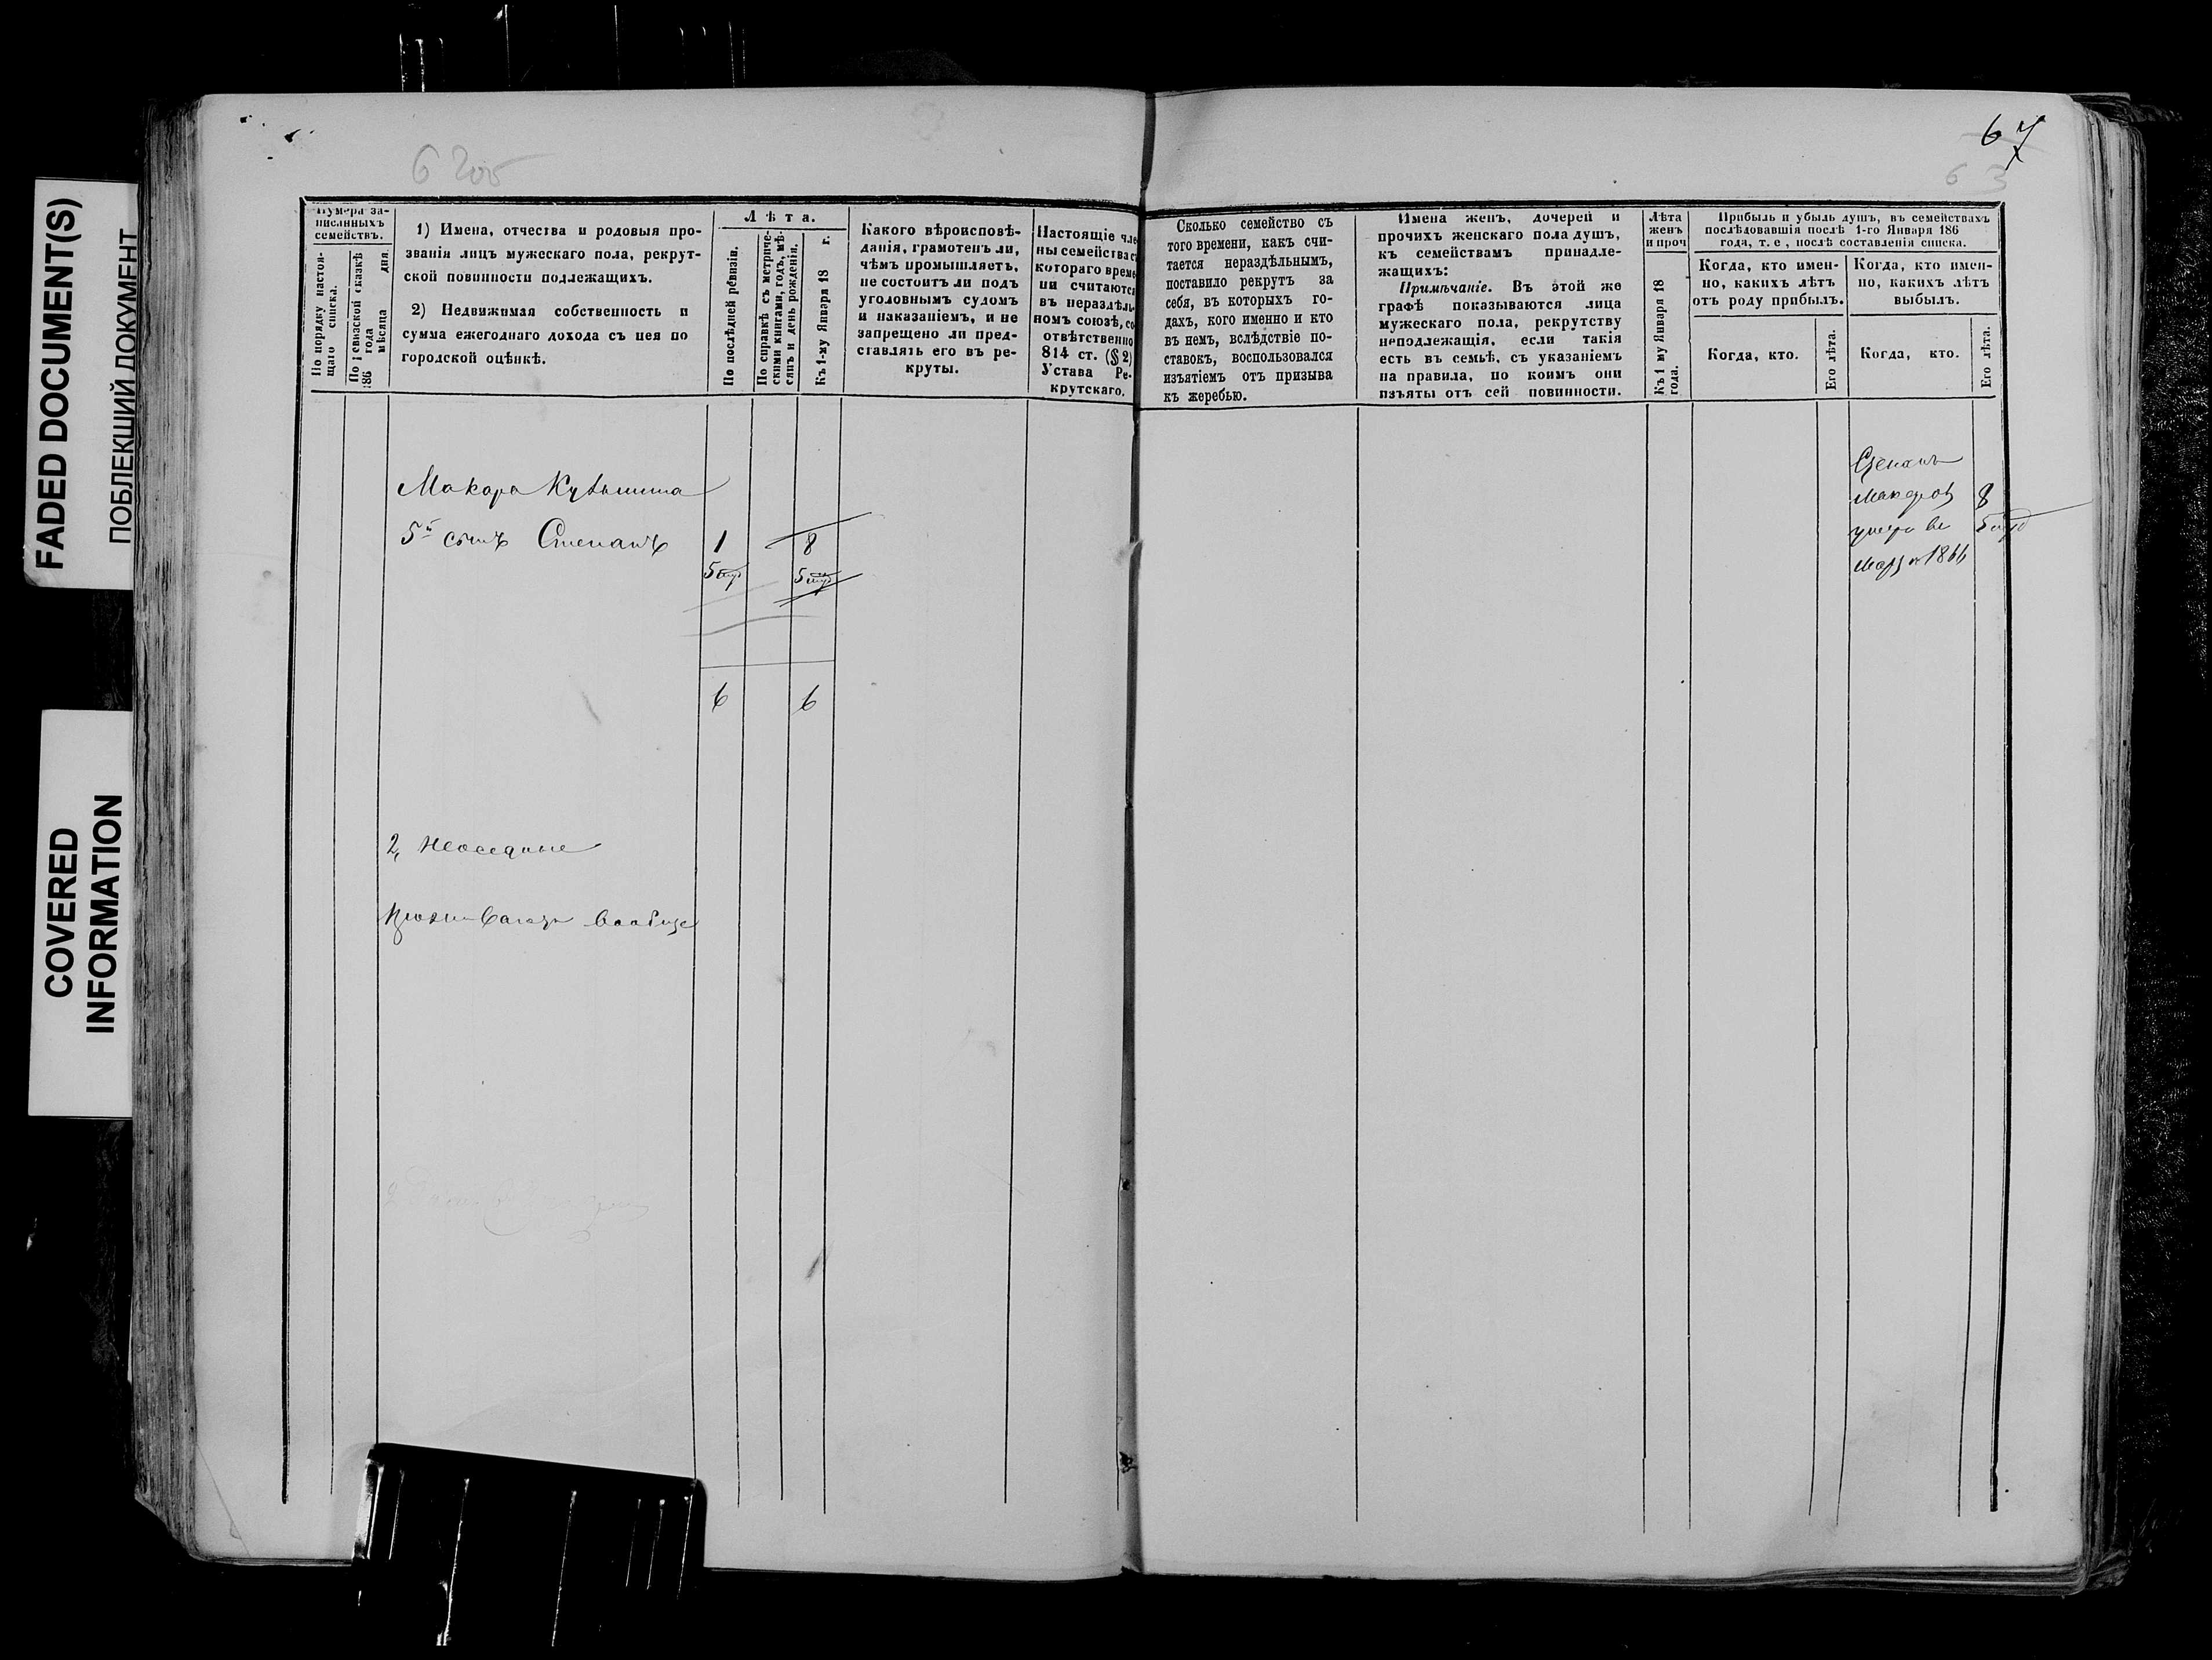 FADED DOCUMENT(S)
ПОБЛЕКШИЙ ДОКУМЕНТ
COVERED
INFORMATION
67
63
Нумера за-
писанныхъ
семействъ.
По порядку настоя-
щаго списка.
По ревизской сказкѣ
186 года
мѣсяца дня.
1) Имена, отчества и родовыя про-
званія лицъ мужескаго пола, рекрут-
ской повинности подлежащихъ.
2) Недвижимая собственность и
сумма ежегоднаго дохода съ нея по
городской оцѣнкѣ.
Лѣта.
По послѣдней ревизіи.
По справкѣ съ метриче-
скими книгами, годъ, мѣ-
сяцъ и день рожденія.
Къ 1-му Января 18 г.
Какого вѣроисповѣ-
данія, грамотенъ ли,
чѣмъ промышляетъ,
не состоитъ ли подъ
уголовнымъ судомъ
и наказаніемъ, и не
запрещено ли пред-
ставлять его въ ре-
круты.
Настоящіе чле
ны семейства с
котораго време
ни считаются
въ нераздѣль-
номъ союзѣ, со
отвѣтственно
814 ст. (§ 2)
Устава Ре-
крутскаго.
Сколько семейство съ
того времени, какъ счи-
тается нераздѣльнымъ,
поставило рекрутъ за
себя, въ которыхъ го-
дахъ, кого именно и кто
въ немъ, вслѣдствіе по-
ставокъ, воспользовался
изъятіемъ отъ призыва
къ жеребью.
Имена женъ, дочерей и
прочихъ женскаго пола душъ,
къ семействамъ принадле-
жащихъ:
Примѣчаніе. Въ этой же
графѣ показываются лица
мужескаго пола, рекрутству
неподлежащія, если такія
есть въ семьѣ, съ указаніемъ
на правила, по коимъ они
изъяты отъ сей повинности.
Лѣта
женъ
и проч
Къ 1 му Января 18
года.
Прибыль и убыль душъ, въ семействахъ
послѣдовавшія послѣ 1-го Января 186
года, т. е., послѣ составленія списка.
Когда, кто имен-
но, какихъ лѣтъ
отъ роду прибылъ.
Когда, кто имен-
но, какихъ лѣтъ
выбылъ.
Когда, кто.
Его лѣта.
Когда, кто.
Его лѣта.
Макара
5й сынъ Степанъ 1 8
6 6
2, Неоседлые
Степанъ
Макаров 8
умеръ в
1866